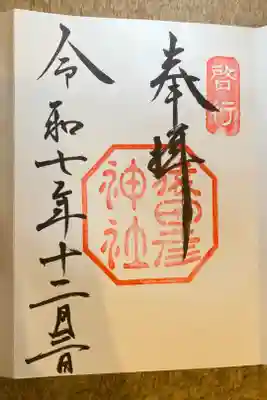 啓行
奉拝
猿田彦
神社
令和七年十二月三日